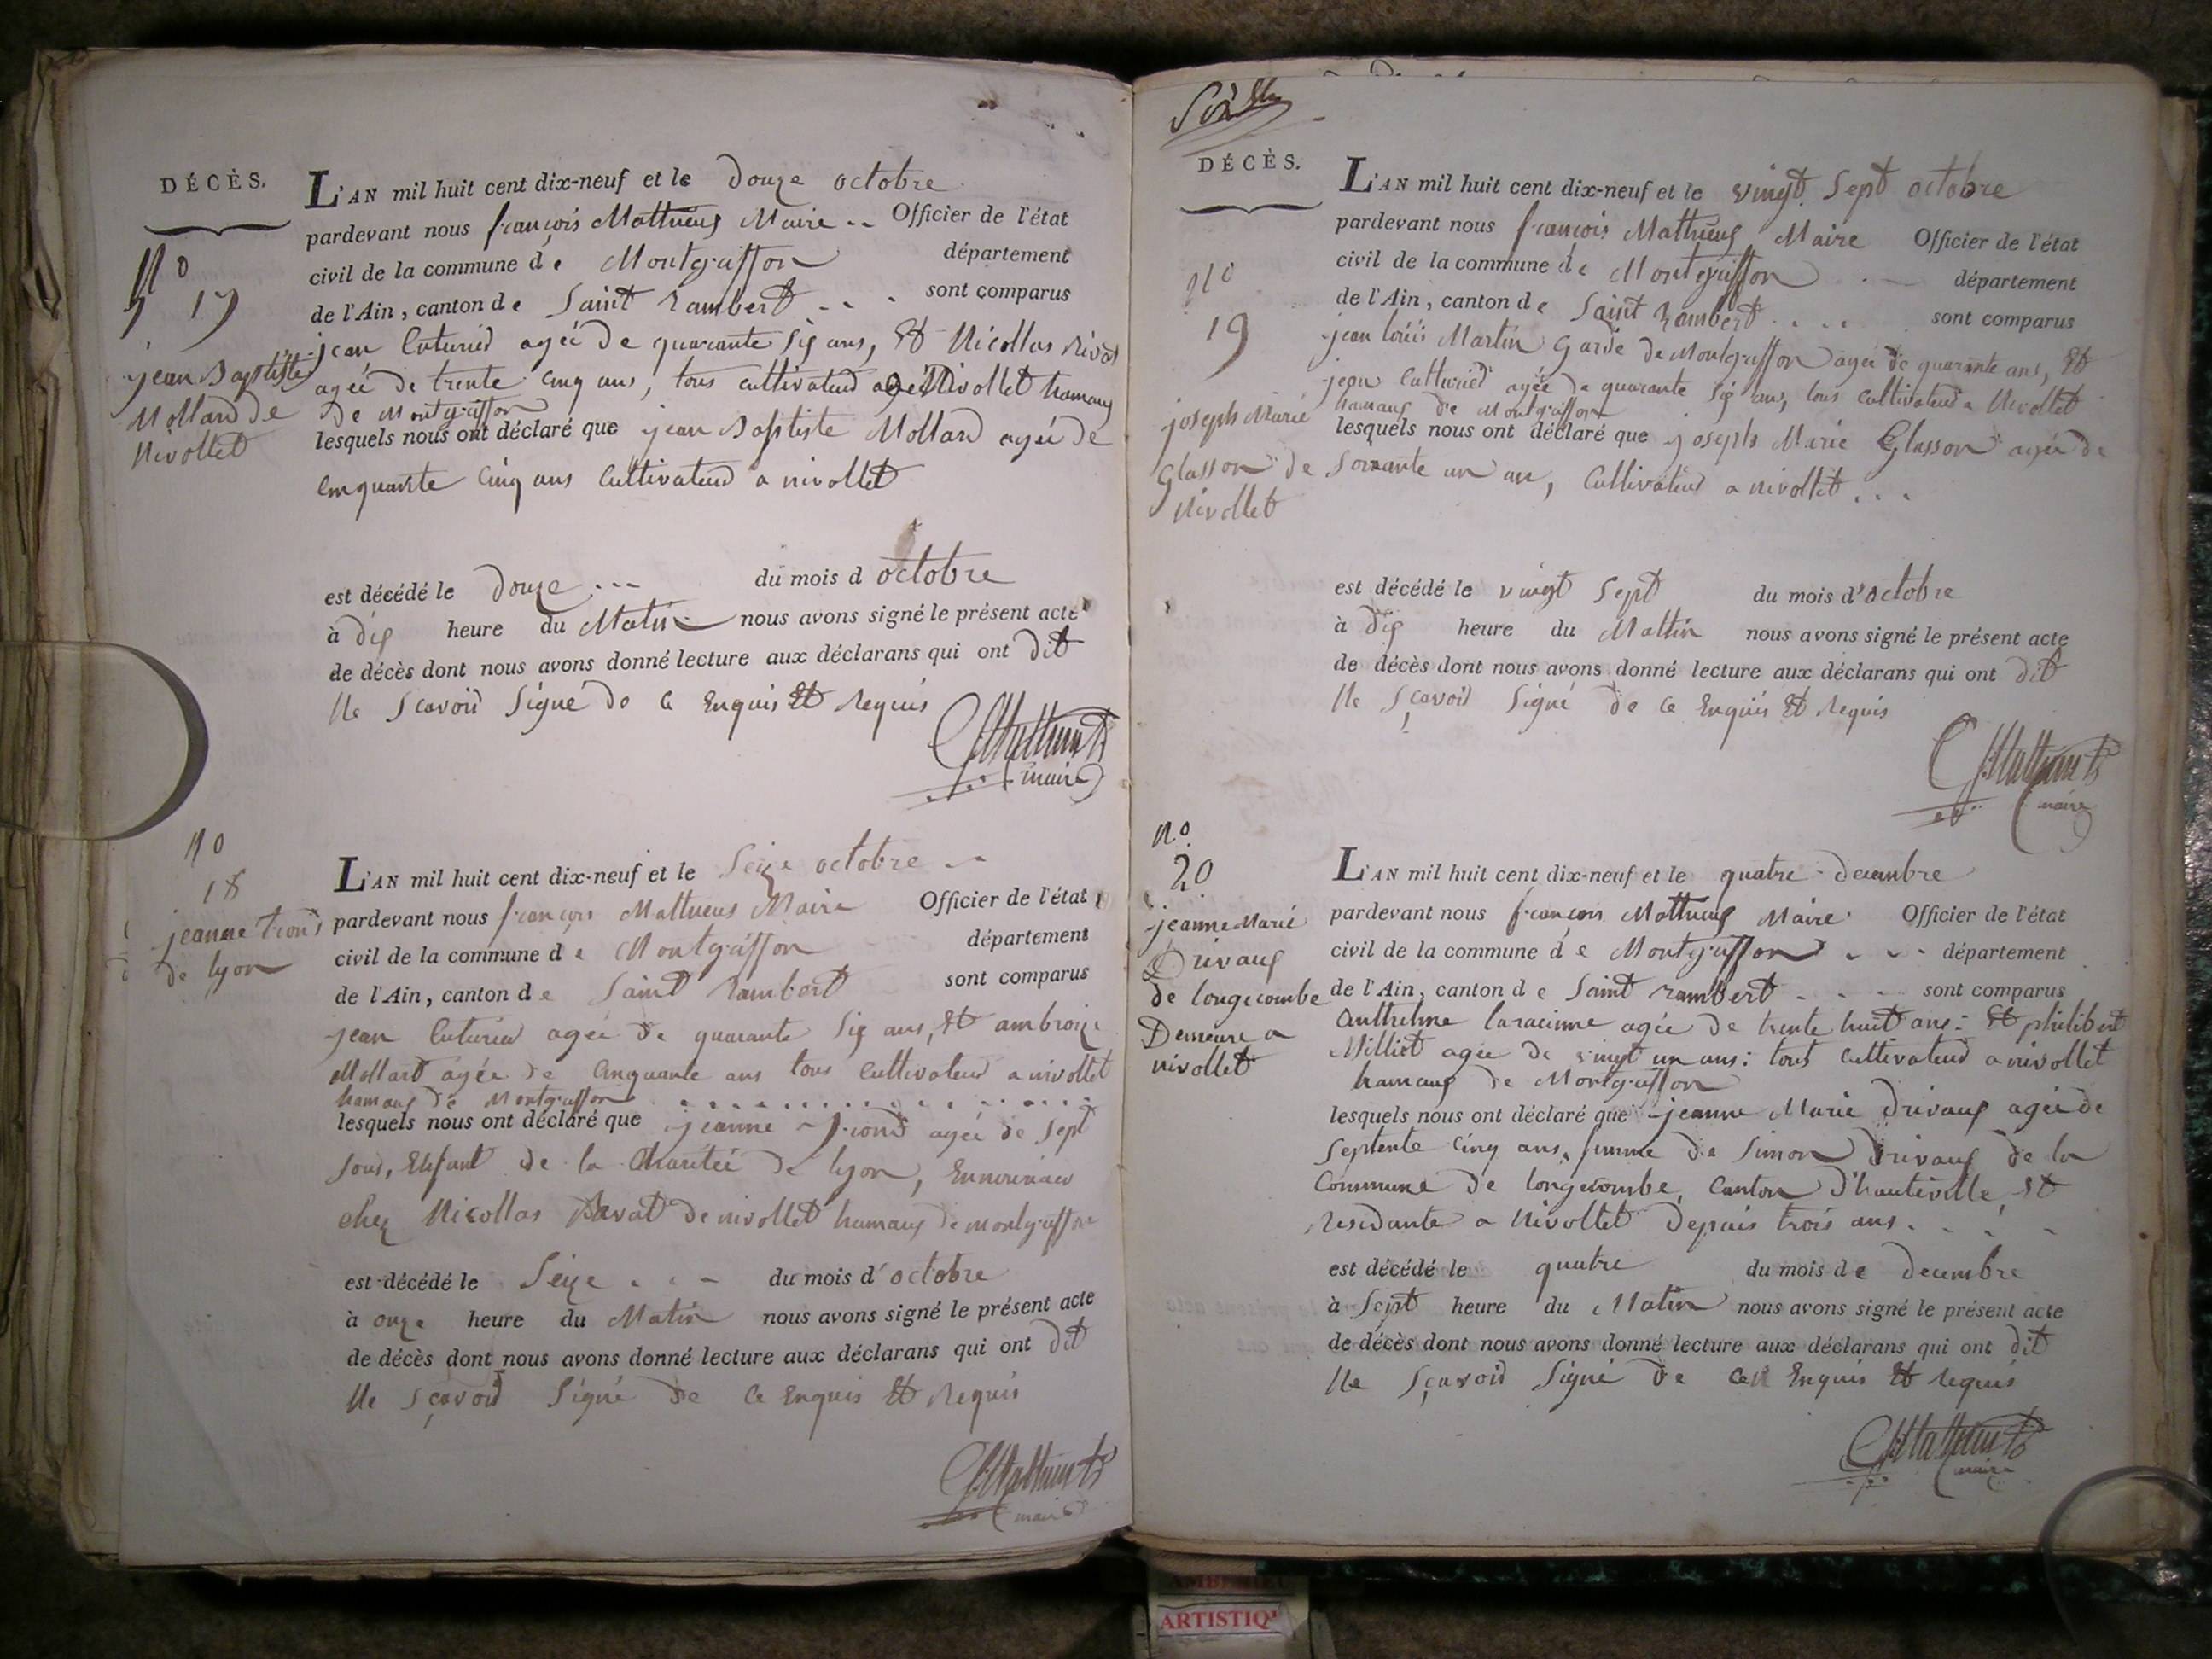 DÉCÈS.
N° 17
jean Baptiste
Mollard de
Nivollet
L'AN mil huit cent dix-neuf et le douze octobre
pardevant nous françois Mathieus Maire Officier de l'état
civil de la commune de Montgriffon département
de l'Ain, canton de Saint Rambert sont comparus
jean Cuturied agée de quarante six ans, Et Nicollas
agée de trente Cinq ans, tous cultivateurd a Nivollet hamaux
de Montgriffon
lesquels nous ont déclaré que jean Baptiste Mollard agée de
Cinquante Cinq ans Cultivateurd a nivollet
est décédé le douze du mois d octobre
à dix heure du Matin nous avons signé le présent acte
de décès dont nous avons donné lecture aux déclarans qui ont dit
Ne Scavoir Signé de Ce Enquis Et Requis
maire
N°
18
jeanne
de lyon
L'AN mil huit cent dix-neuf et le Seize octobre
pardevant nous françois Mathieus Maire Officier de l'état
civil de la commune de Montgriffon département
de l'Ain, canton de Saint Rambert sont comparus
jean Cuturied agée de quarante Six ans, Et ambroize
Mollard agée de Cinquante ans tous Cultivateurd a nivollet
hamaux de Montgriffon
lesquels nous ont déclaré que jeanne agée de Sept
Enfant de la Charitée de lyon,
chez Nicollas de nivollet hamaux de montgriffon
est décédé le Seize du mois d'octobre
à onze heure du Matin nous avons signé le présent acte
de décès dont nous avons donné lecture aux déclarans qui ont dit
Ne sçavoir Signé de Ce Enquis Et Requis
maire
DÉCÈS.
N°
19
joseph Marie
Glasson de
Nivollet
L'AN mil huit cent dix-neuf et le vingt Sept octobre
pardevant nous françois Mathieus Maire Officier de l'état
civil de la commune de Montgriffon département
de l'Ain, canton de Saint Rambert sont comparus
jean loüis Martin Garde de Montgriffon agée de quarante ans, Et
jean Cutturied agée de quarante Six ans, tous Cultivateurd a Nivollet
hamaux de Montgriffon
lesquels nous ont déclaré que joseph Marie Glasson agée de
Soixante un an, Cultivateurd a nivollet
est décédé le vingt Sept du mois d'octobre
à dix heure du Mattin nous avons signé le présent acte
de décès dont nous avons donné lecture aux déclarans qui ont dit
Ne Sçavoir Signé de Ce Enquis Et Requis
maire
N°
20
jeanne Marie
Drivaux
de longecombe
Demeure a
nivollet
L'AN mil huit cent dix-neuf et le quatre decembre
pardevant nous françois Mathieus Maire Officier de l'état
civil de la commune de Montgriffon département
de l'Ain, canton de Saint rambert sont comparus
Anthelme laracinne agée de trente huit ans: Et philibert
Milliet agée de vingt un ans: tous Cultivateurd a nivollet
hamaux de Montgriffon
lesquels nous ont déclaré que jeanne Marie Drivaux agée de
Septente Cinq ans, femme de Simon Drivaux de la
Commune de longecombe, Canton D'hauteville, Et
Residante a Nivollet Depuis trois ans.
est décédé le quatre du mois de decembre
à Sept heure du Matin nous avons signé le présent acte
de décès dont nous avons donné lecture aux déclarans qui ont dit
Ne Sçavoir Signé de Ce Enquis Et Requis
maire
ARTISTIQ